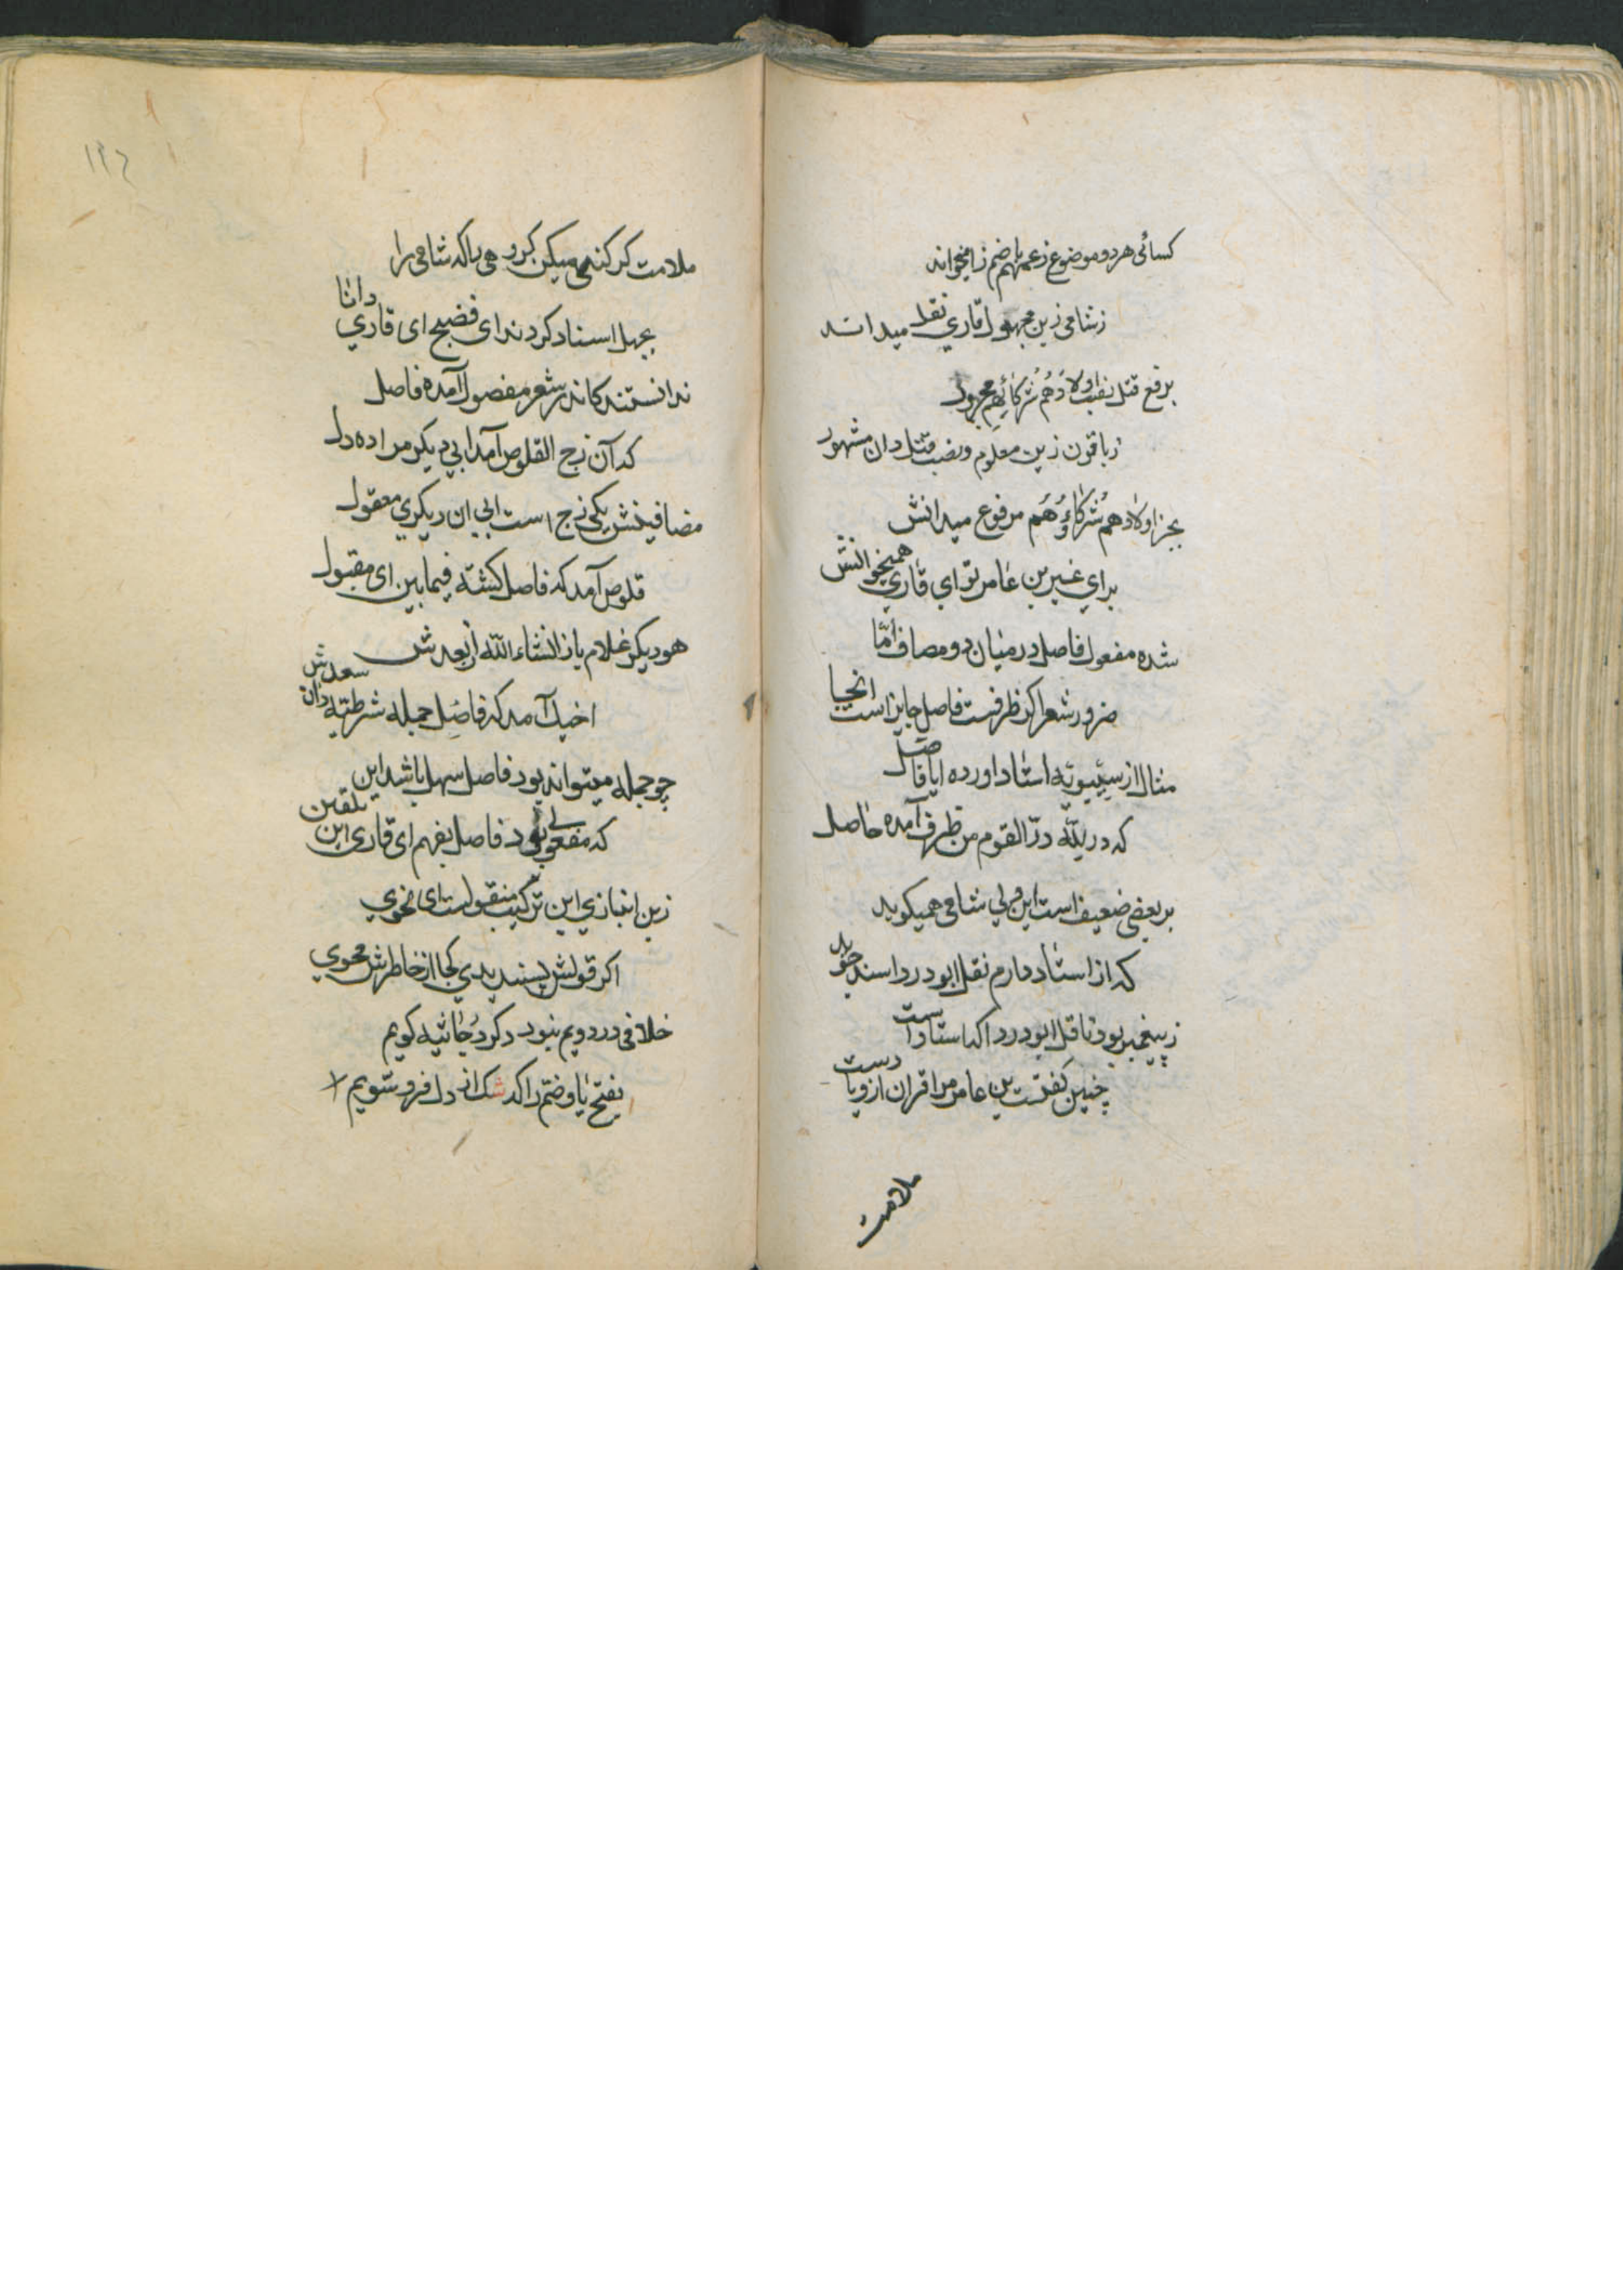 کسائی هر دو موضوع زعمهم با ضم زا میخواند
زشامی زین مجهول قاری نقل میداند
برفع قتل نصب اولادهم شرکائهم مجرور
زباقون زین معلوم و نصب قتل دان مشهور
بجز اولادهم شرکاؤهم مرفوع میدانش
برای غیر بن عامر تو ای قاری همیخوانش
شده مفعول فاصل در میان دو مضاف اما
ضرور شعر اکر ظرفست فاصل جایز است انجا
مثال از سیبویه استاد اورده ایا فاضل
که در لله در القوم من ظرف آمده حاصل
بر بعضی ضعیف است این ولی شامی همیکوید
که از استاد دارم نقل ابودردا سند جوید
زپیغمبر بود ناقل ابودردا که استاد است
چنین کفتست بن عامر مرا قران ازو یا دست
ملامت
۱۲۶
ملامت کر کنی میکن برو هی را که شامی را
بجهل اسناد کردند ای فضیح ای قاری دانا
ندانستند کاندر شعر مفصول آمده فاصل
که آن زج القلوص آمد ابی دیکر مراده دل
مضافینش یکی زج است ابی ان دیکری معقول
قلوص آمد که فاصل کشته فیمابین ای مقبول
هو دیکر غلام باز انشاء الله از بعدش
اخیک آمد که فاصل جمله شرطیه دان سعدش
چو جمله میتواند بود فاصل سهل باشد این
که مفعولی بود فاصل بفهم ای قاری این تلقین
زبن انبازی این ترکیب منقولست ای نحوی
اکر قولش پسندیدی کجا از خاطرش محوی
خلافی در دویم نبود دکر در جاثیه کویم
بفتح یا و ضم را که شک از دل فرو شویم